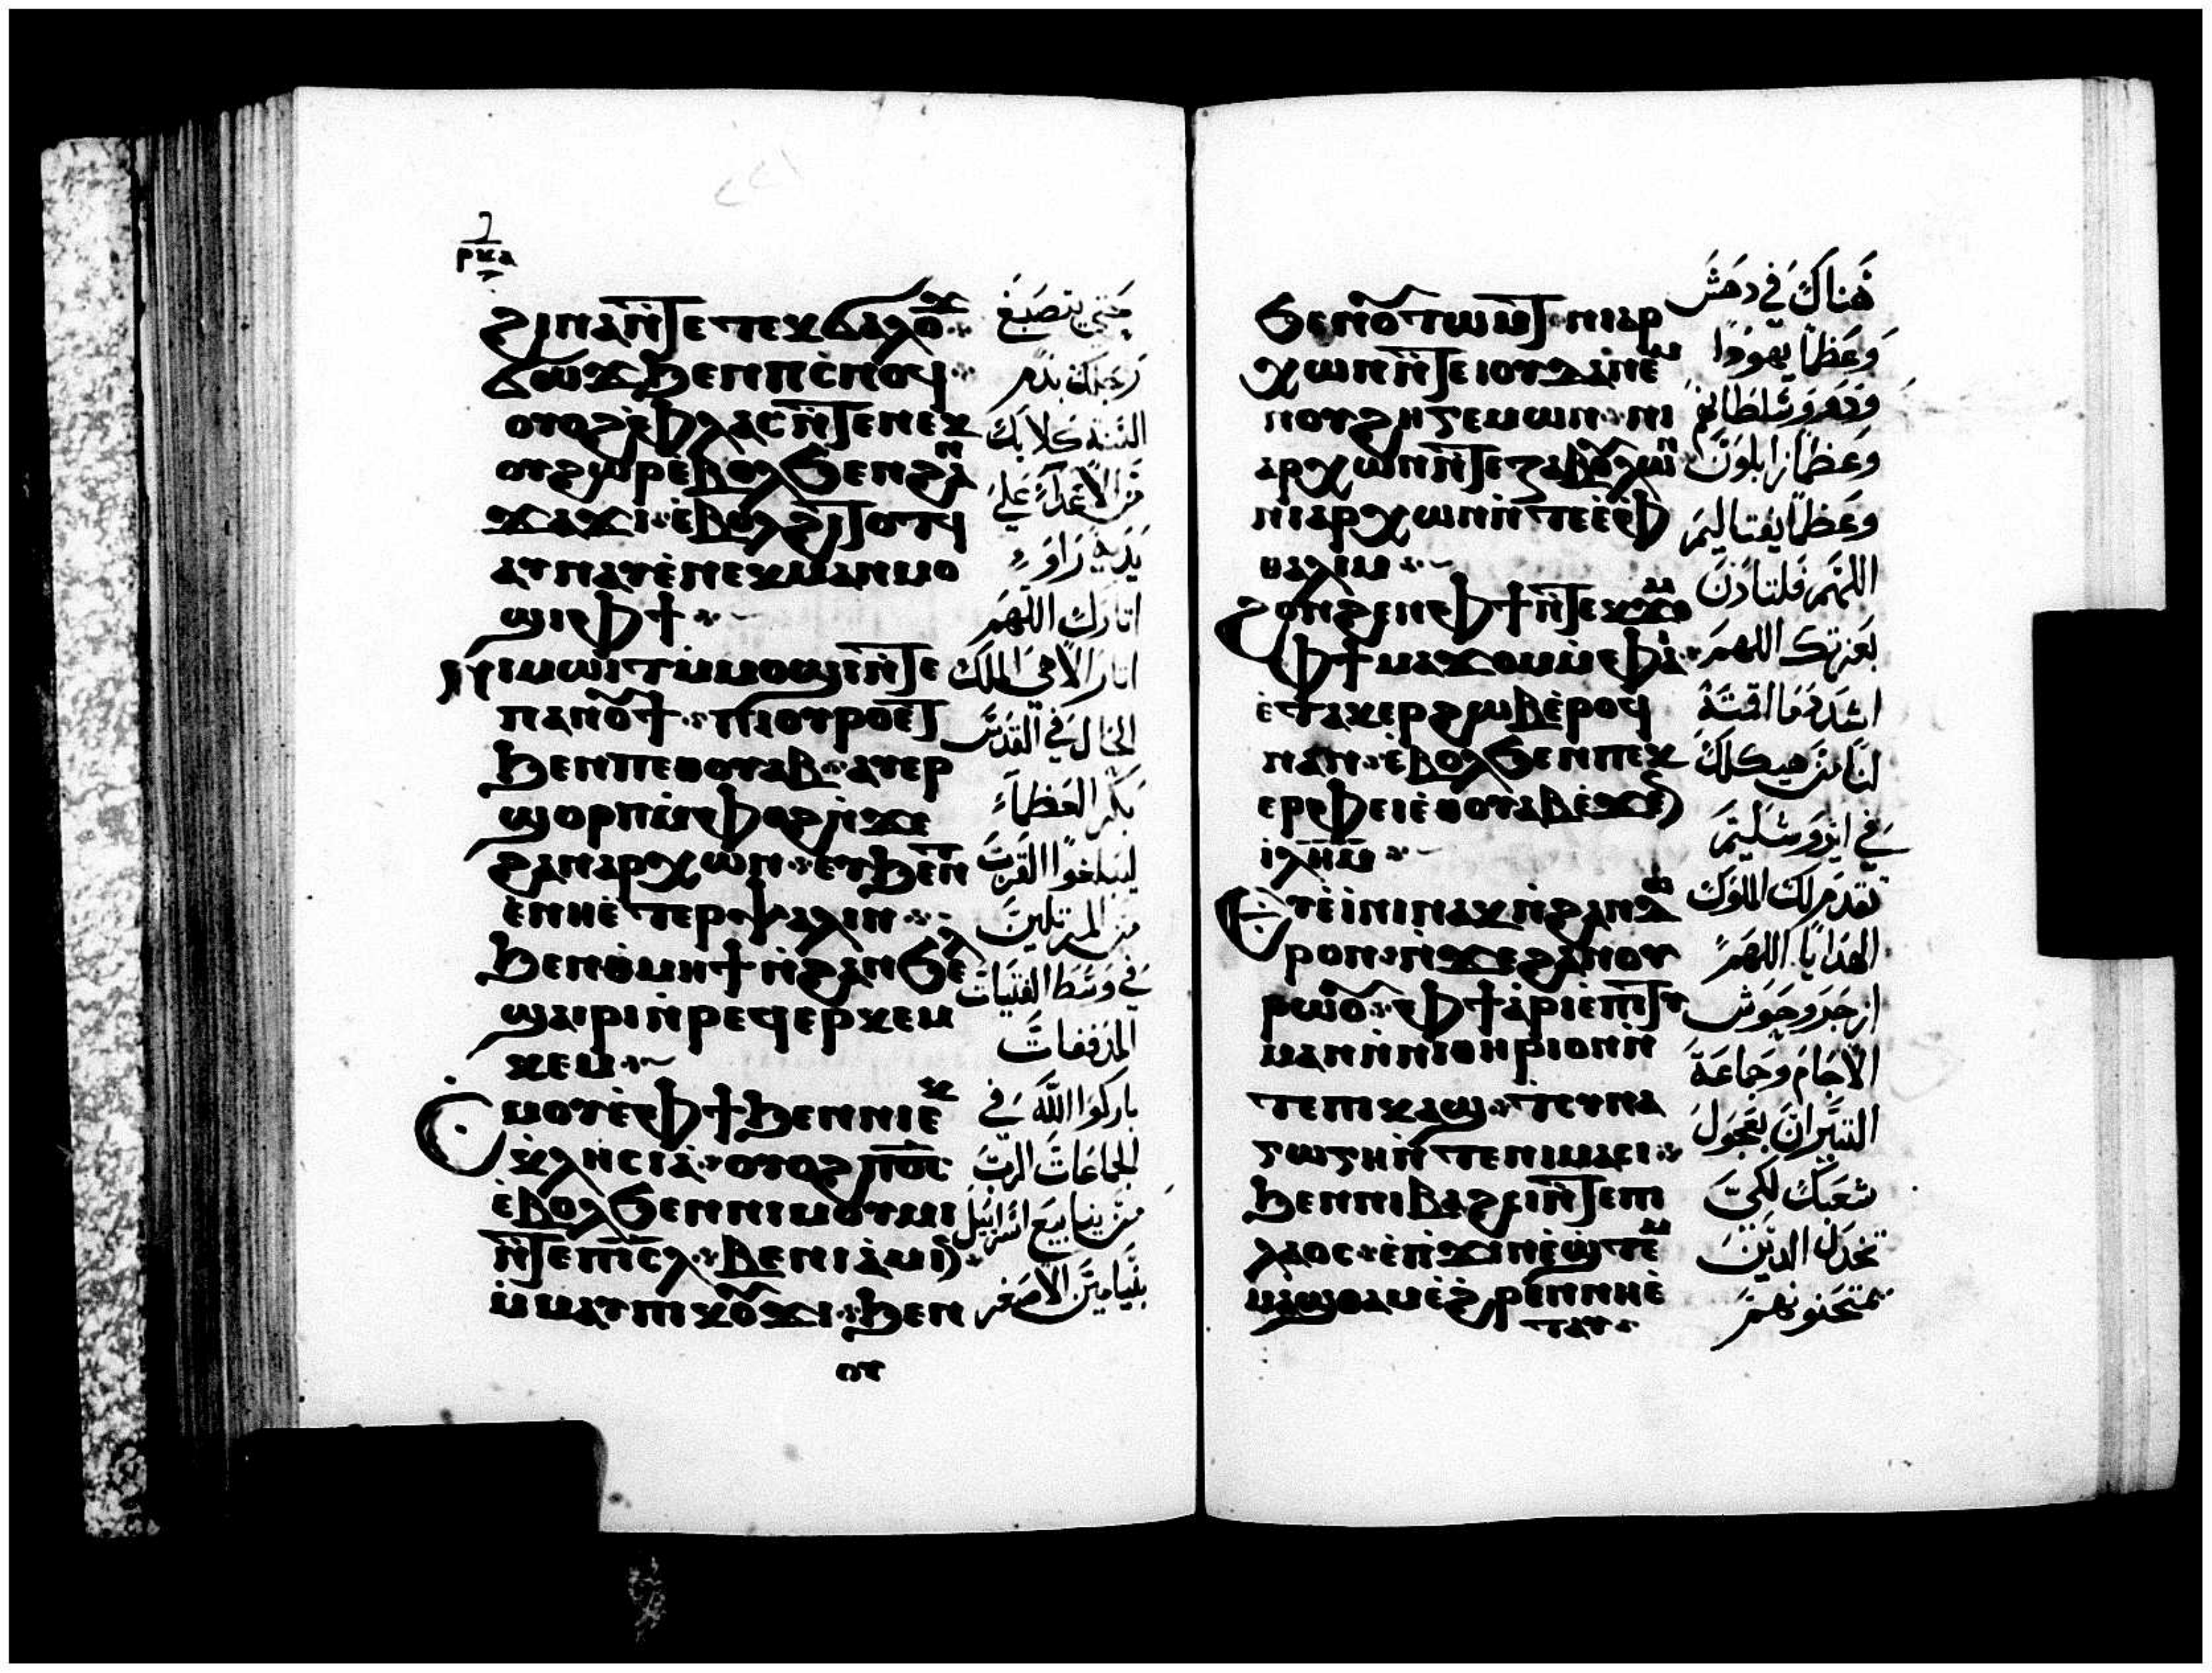 ⲣⲕⲁ
ϩⲓⲛⲁ ⲛ̀ⲧⲉ ⲧⲉⲕϭⲁⲗⲟϫ
ϭⲱϫ ϧⲉⲛ ⲡⲥ̀ⲛⲟϥ
ⲟⲩⲟϩ ⲫ̀ⲗⲁⲥ ⲛ̀ⲧⲉ ⲛⲉⲕ
ⲟⲩϩⲱⲣ ⲉ̀ⲃⲟⲗϧⲉⲛ ϩⲁⲛ
ϫⲁϫⲓ ⲉ̀ⲃⲟⲗϩⲓⲧⲟⲧϥ
ⲁⲩⲛⲁⲩ ⲉ̀ⲛⲉⲕⲙⲁⲛⲙⲟ
ϣⲓ ⲫϯ
ⲛⲓⲙⲱⲓⲧ ⲙ̀ⲙⲟϣⲓ ⲛ̀ⲧⲉ
ⲡⲁⲛⲟⲩϯ ⲡⲓⲟⲩⲣⲟ ⲉⲧ
ϧⲉⲛ ⲡⲉⲑⲟⲩⲁⲃ ⲁⲩⲉⲣ
ϣⲟⲣⲡ ⲙ̀ⲫⲟϩ ⲛ̀ϫⲉ
ϩⲁⲛⲁⲣⲭⲱⲛ ⲉⲩϧⲉⲛⲧ
ⲉ̀ⲛⲏ ⲉ̀ⲧⲉⲣⲯⲁⲗⲓⲛ
ϧⲉⲛ ⲑ̀ⲙⲏϯ ⲛ̀ϩⲁⲛϧⲉⲗ
ϣⲁⲓⲣⲓ ⲛ̀ⲣⲉϥⲉⲣⲕⲉⲙ
ⲕⲉⲙ
Ⲥⲙⲟⲩ ⲉ̀ⲫϯ ϧⲉⲛ ⲛⲓⲉⲕ
ⲕ̀ⲗⲏⲥⲓⲁ ⲟⲩⲟϩ ⲡϭⲟⲓⲥ
ⲉ̀ⲃⲟⲗϧⲉⲛ ⲛⲓⲙⲟⲩⲙⲓ
ⲛ̀ⲧⲉ ⲡⲓⲥⲗ ⲃⲉⲛⲓⲁⲙⲓⲛ
ⲙ̀ⲙⲁⲩ ⲡⲓⲕⲟⲩϫⲓ ϧⲉⲛ
ⲟⲩ
حتي يتصبغ
رجلك بدم
السنة كلابك
من الاعداء علي
يديه راوء
اثارك اللهم
اثار الاهي الملك
الحال في القدس
بكر العظماء
ليبلغوا القرب
من المرتلين
في وسط الفتيات
المدففات
باركوا الله في
الجماعات الرب
من ينابيع اسرائيل
بنيامين الاصغر
ϧⲉⲛ ⲟⲩⲧⲱⲙⲧ ⲛⲓⲁⲣ
ⲭⲱⲛ ⲛ̀ⲧⲉ ⲓⲟⲩⲇⲁ ⲛⲉⲙ
ⲛⲟⲩϩⲏⲅⲉⲙⲱⲛ ⲛⲓ
ⲁⲣⲭⲱⲛ ⲛ̀ⲧⲉ ⲍⲁⲃⲟⲩⲗⲱⲛ
ⲛⲓⲁⲣⲭⲱⲛ ⲛ̀ⲧⲉ ⲉ̀ⲫ
ⲑⲁⲗⲓⲙ
ϩⲟⲛϩⲉⲛ ⲫϯ ⲛ̀ⲧⲉⲕϫⲟⲙ
ⲫϯ ⲙⲁϫⲟⲙ ⲙ̀ⲫⲁⲓ
ⲉ̀ⲧⲁⲕⲉⲣϩⲱⲃ ⲉ̀ⲣⲟϥ
ⲛⲁⲛ ⲉ̀ⲃⲟⲗϧⲉⲛ ⲡⲉⲕ
ⲉⲣⲫⲉⲓ ⲉ̀ⲑⲟⲩⲁⲃ ⲉ̀ϫⲉⲛ
ⲓⲗⲏⲙ
Ⲉⲩⲉ̀ⲓ̀ⲛⲓ ⲛⲁⲕ ⲛ̀ϩⲁⲛⲇⲱ
ⲣⲟⲛ ⲛ̀ϫⲉ ϩⲁⲛⲟⲩ
ⲣⲱⲟⲩ ⲫϯ ⲁ̀ⲣⲓⲉ̀ⲡⲓⲧⲓ
ⲙⲁⲛ ⲛ̀ⲛⲓⲑⲏⲣⲓⲟⲛ ⲛ̀
ⲧⲉ ⲡⲓⲕⲁϣ ⲧⲥⲩⲛⲁ
ⲅⲱⲅⲏ ⲛ̀ⲧⲉ ⲛⲓⲙⲁⲥⲓ
ϧⲉⲛ ⲛⲓⲃⲁϩⲥⲓ ⲛ̀ⲧⲉ ⲡⲓ
ⲗⲁⲟⲥ ⲉ̀ⲡ̀ϫⲓⲛⲉ̀ϣⲧⲉⲙ
ⲙⲁϣⲑⲁⲙ ⲉ̀ϩⲣⲉⲛ ⲛⲏⲉ̀
ⲧⲁⲩ
هناك في دهش
وعظما يهودا
وعظما زابلون
وعظما يفتاليم
اللهم فلتاذن
بعزتك اللهم
اشدد هذا اقتنه
لنا من هيكلك
في ايروشليم
تقدم لك الملوك
الهدايا اللهم
ازجر وحوش
الاجام وجماعة
التيران بعجول
شعبك لكي
تخذل الذين
يمتحنونهم